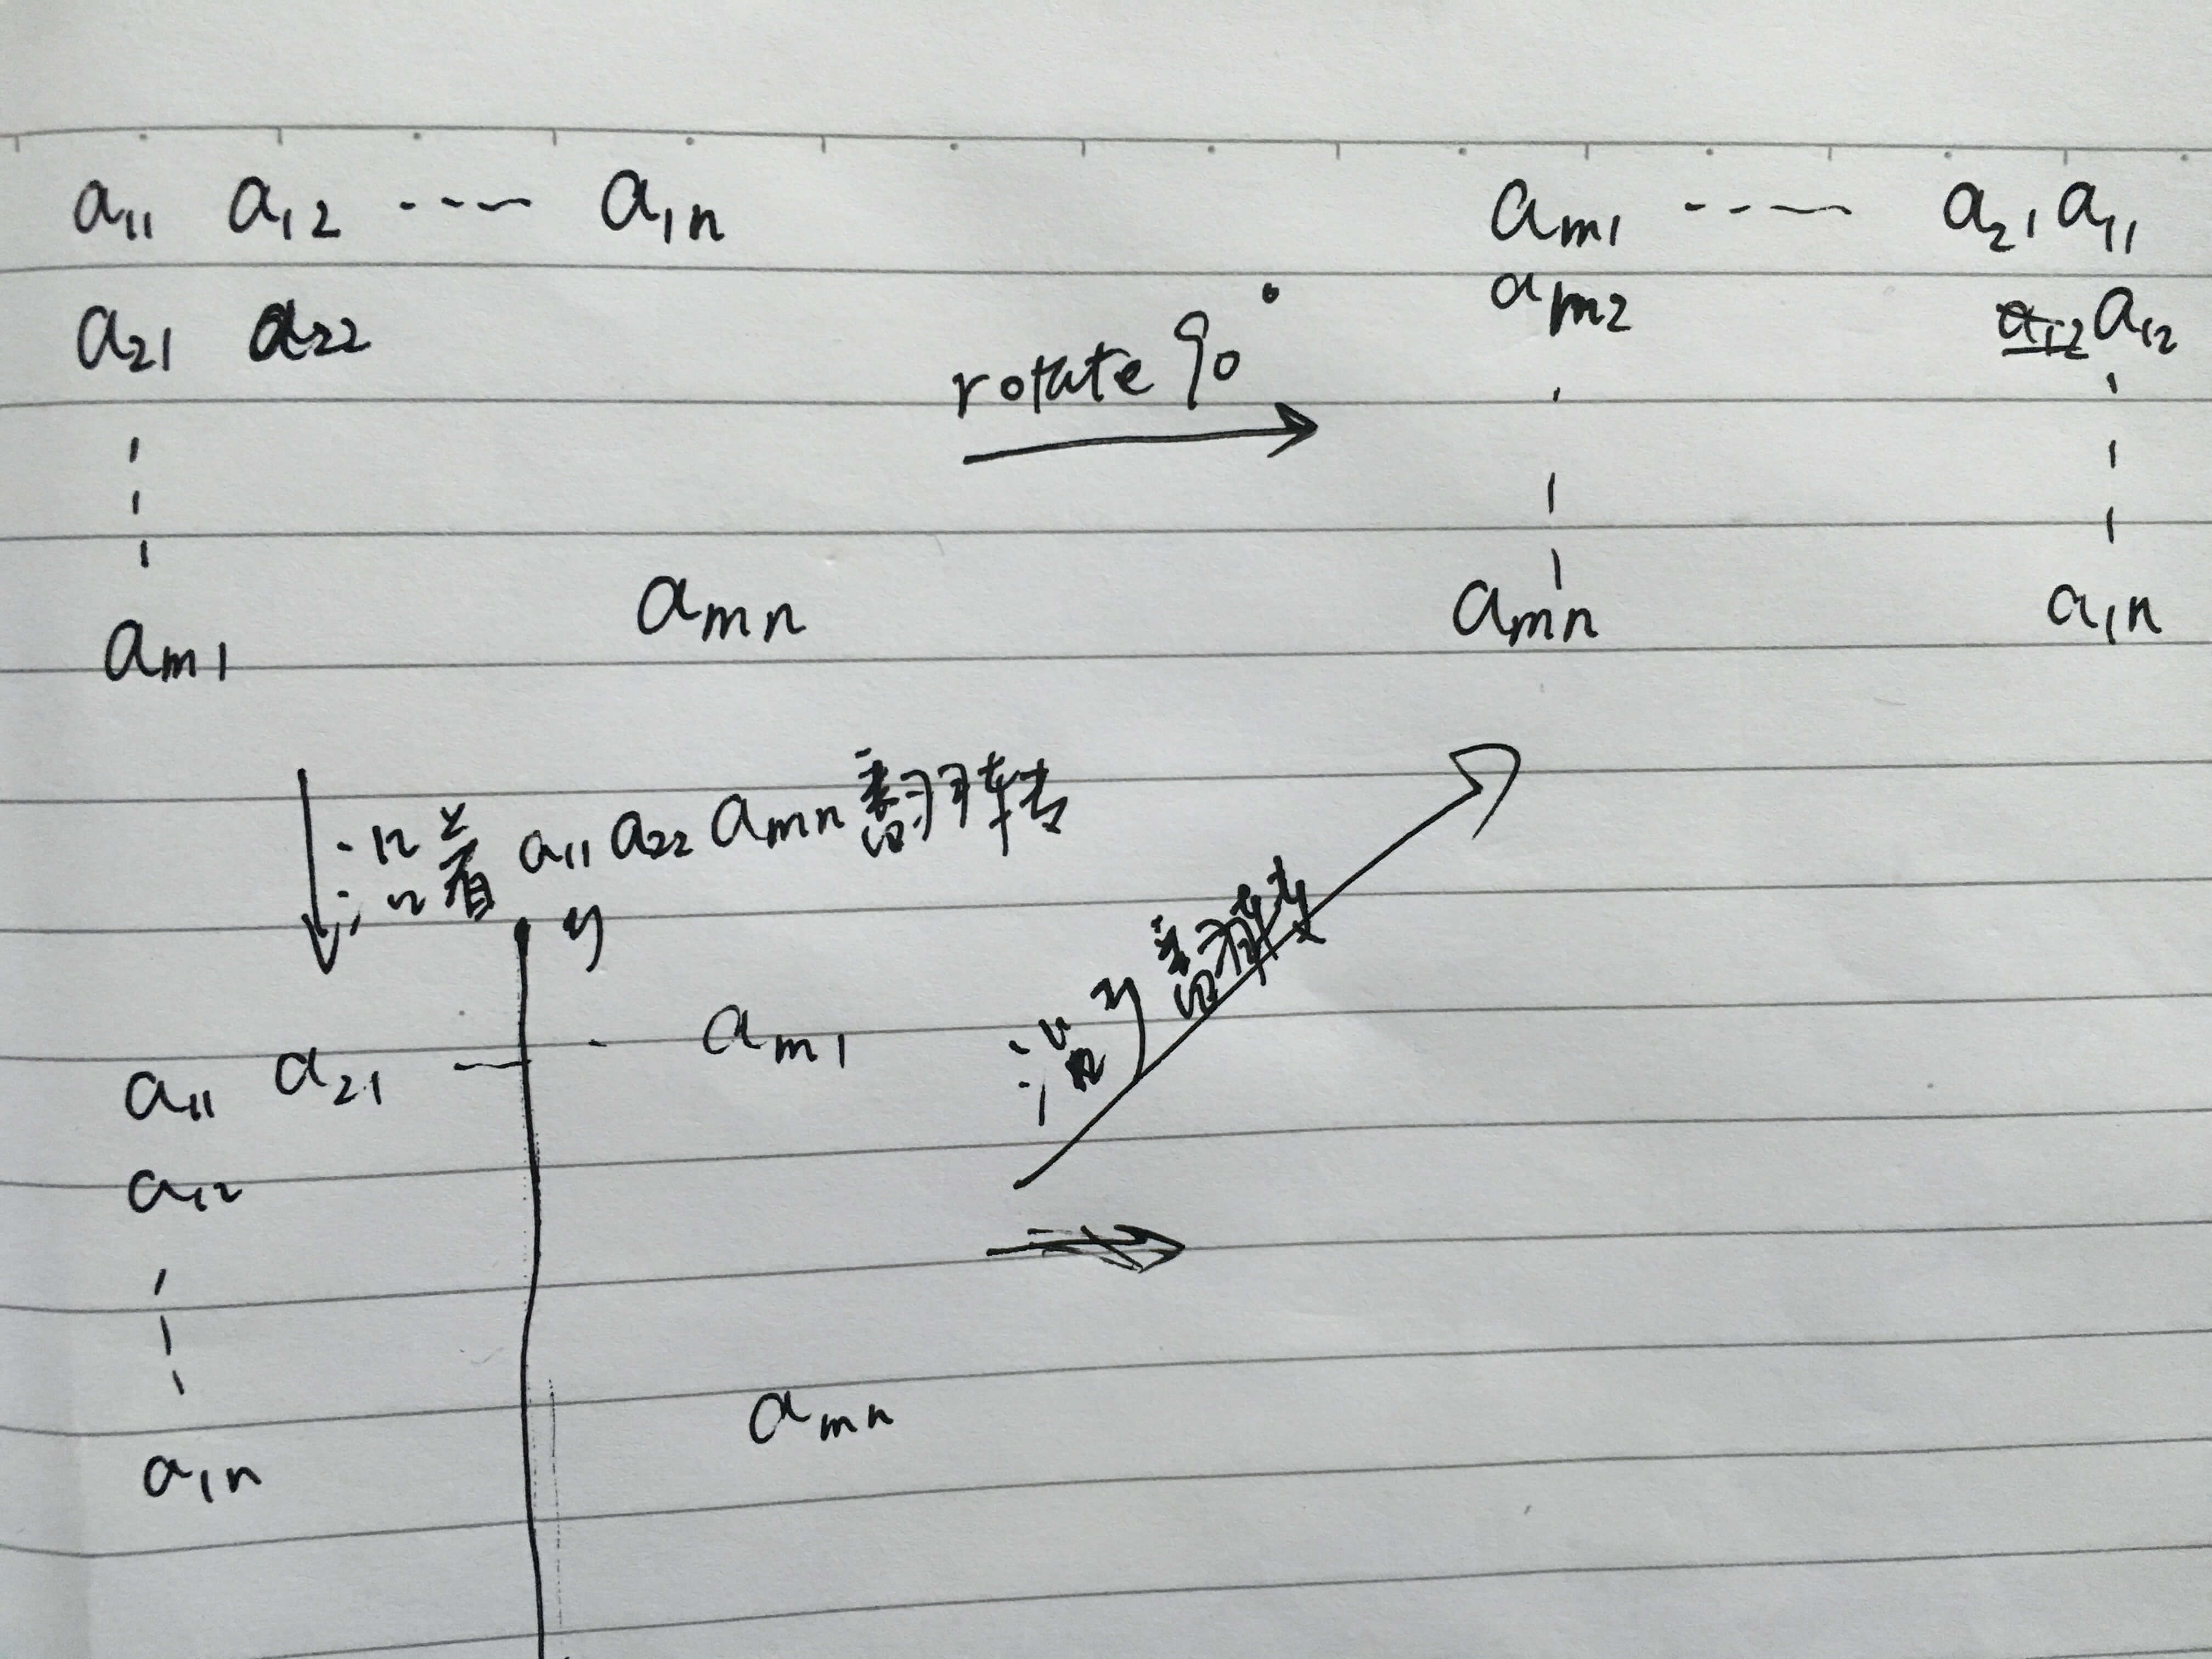 a₁₁ a₁₂ ---- a₁ₙ
a₂₁ a₂₂
aₘ₁ aₘₙ
rotate 90°
aₘ₁ ---- a₂₁ a₁₁
aₘ₂ a₁₂ a₁₂
aₘₙ a₁ₙ
沿着 a₁₁ a₂₂ aₘₙ 翻转
y
a₁₁ a₂₁ -- aₘ₁
a₁₂
a₁ₙ aₘₙ
沿 y 翻转